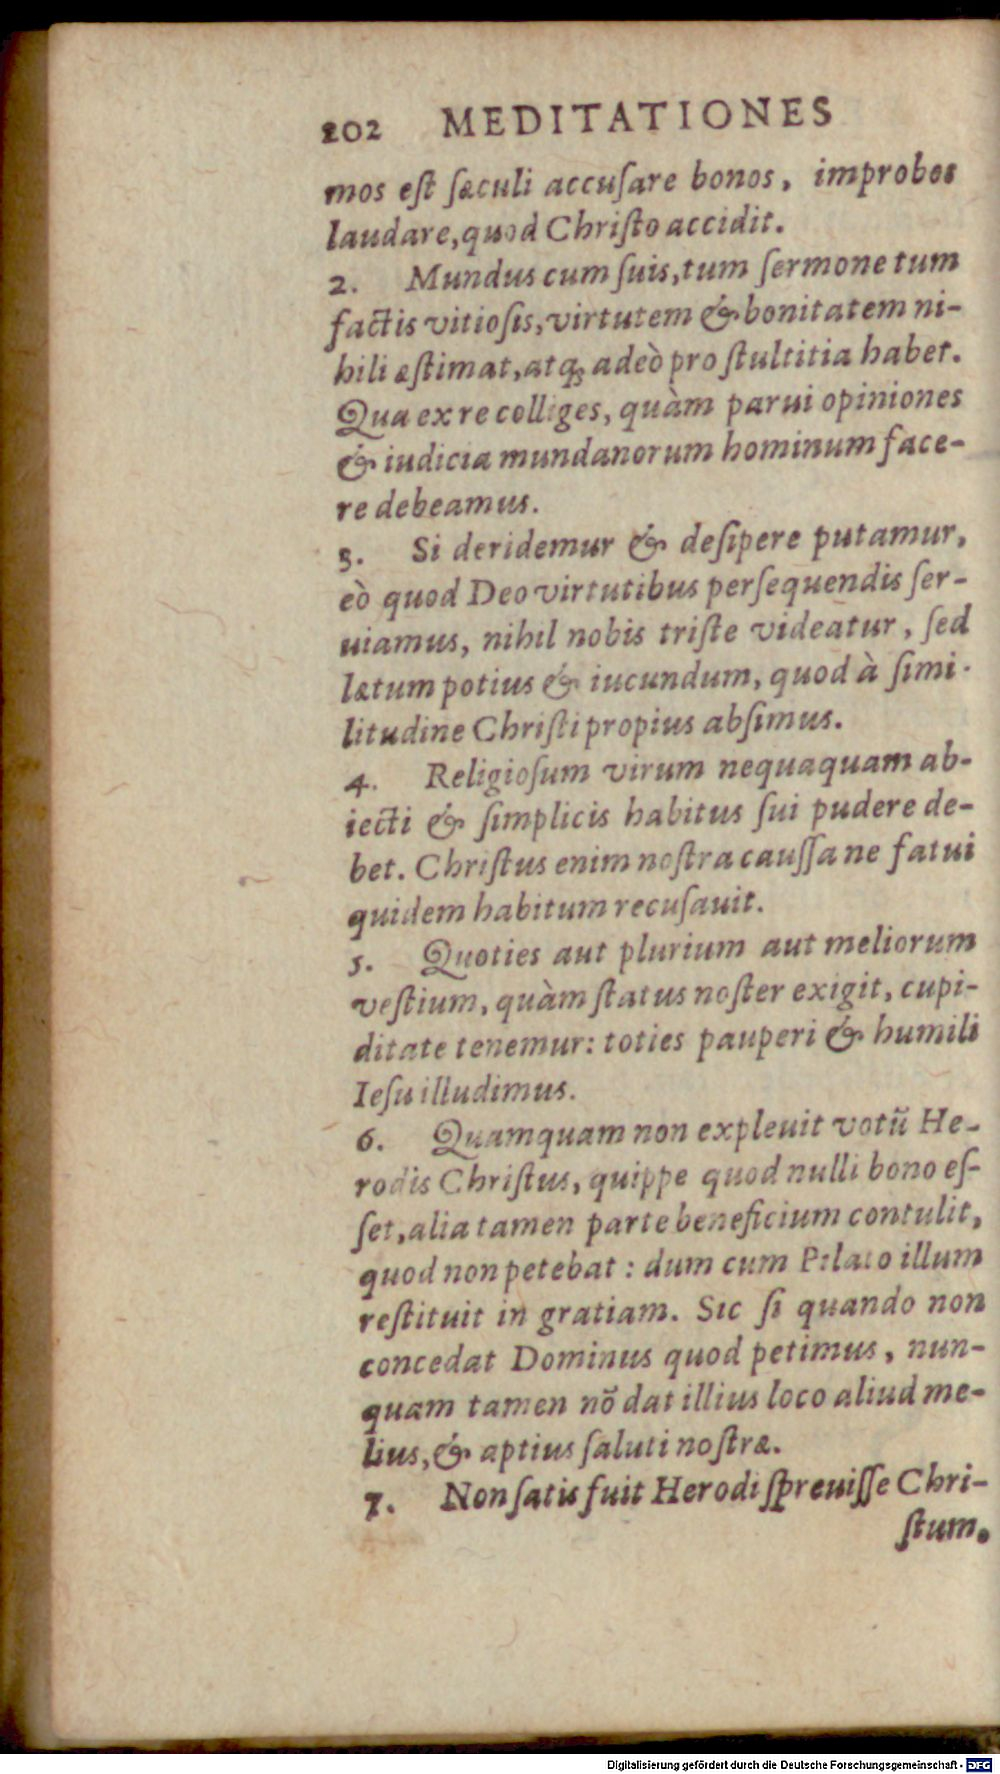 202 MEDITATIONES
mos est sæculi accusare bonos, improbos
laudare, quod Christo accidit.
2. Mundus cum suis, tum sermone tum
factis vitiosis, virtutem & bonitatem ni-
hili æstimat, atq; adeò pro stultitia habet.
Qua ex re colliges, quàm parui opiniones
& iudicia mundanorum hominum face-
re debeamus.
3. Si deridemur & desipere putamur,
eò quod Deo virtutibus persequendis ser-
uiamus, nihil nobis triste videatur, sed
lætum potius & iucundum, quod à simi-
litudine Christi propius absimus.
4. Religiosum virum nequaquam ab-
iecti & simplicis habitus sui pudere de-
bet. Christus enim nostra caussa ne fatui
quidem habitum recusauit.
5. Quoties aut plurium aut meliorum
vestium, quàm status noster exigit, cupi-
ditate tenemur: toties pauperi & humili
Iesu illudimus.
6. Quamquam non expleuit votũ He-
rodis Christus, quippe quod nulli bono es-
set, alia tamen parte beneficium contulit,
quod non petebat: dum cum Pilato illum
restituit in gratiam. Sic si quando non
concedat Dominus quod petimus, nun-
quam tamen nõ dat illius loco aliud me-
lius, & aptius saluti nostræ.
7. Non satis fuit Herodi spreuisse Chri-
stum.
Digitalisierung gefördert durch die Deutsche Forschungsgemeinschaft - DFG